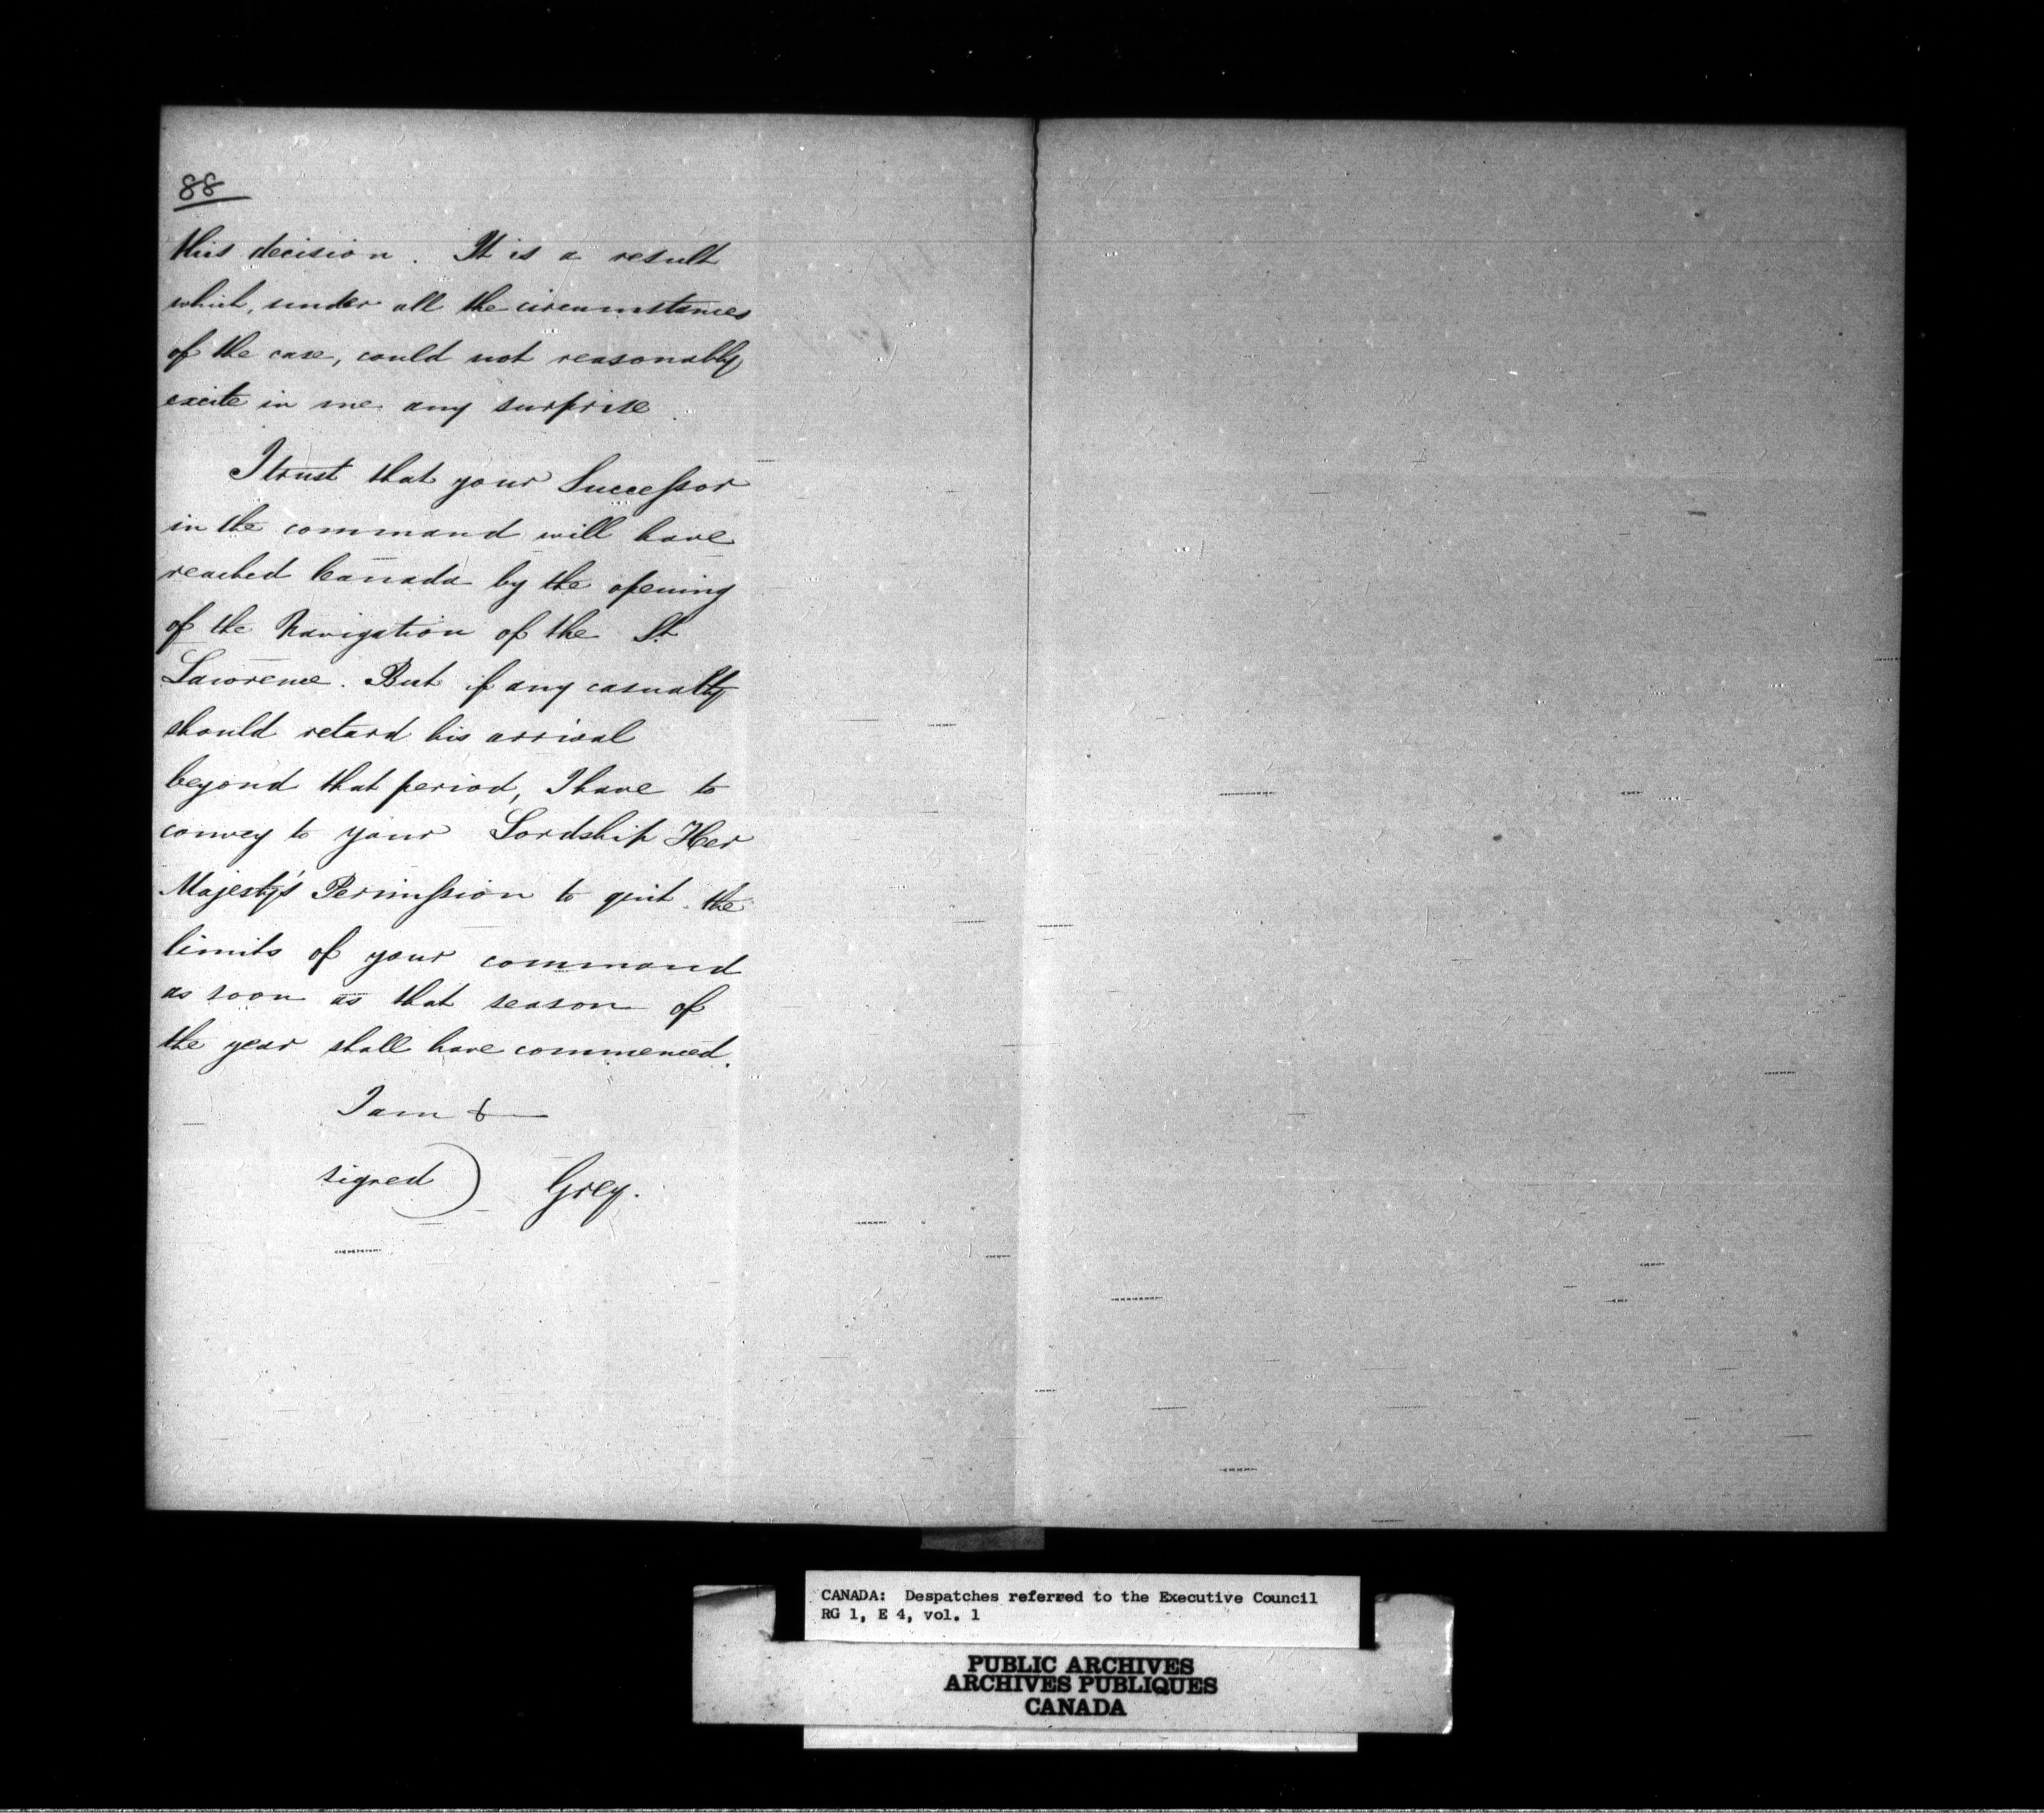 88
this decision. It is a result
which, under all the circumstances
of the case, could not reasonably
excite in me any surprise.
I trust that your Successor
in the command will have
reached Canada by the opening
of the Navigation of the St
Lawrence. But if any casualty
should retard his arrival
beyond that period, I have to
convey to your Lordship Her
Majesty's Permission to quit the
limits of your command
as soon as that season of
the year shall have commenced.
I am &
signed) Grey.
CANADA: Despatches referred to the Executive Council
RG 1, E 4, vol. 1
PUBLIC ARCHIVES
ARCHIVES PUBLIQUES
CANADA